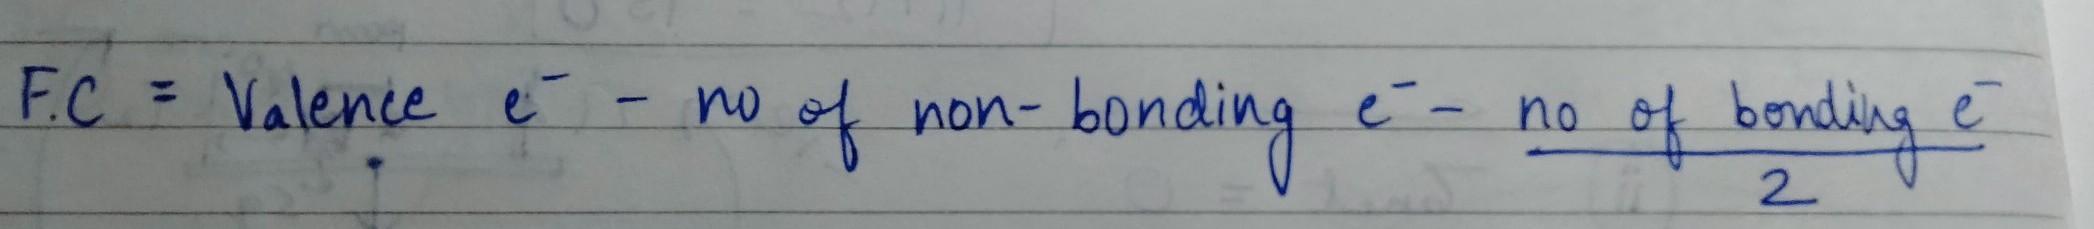 F.C = Valence e⁻ - no of non-bonding e⁻ - no of bonding e⁻
2